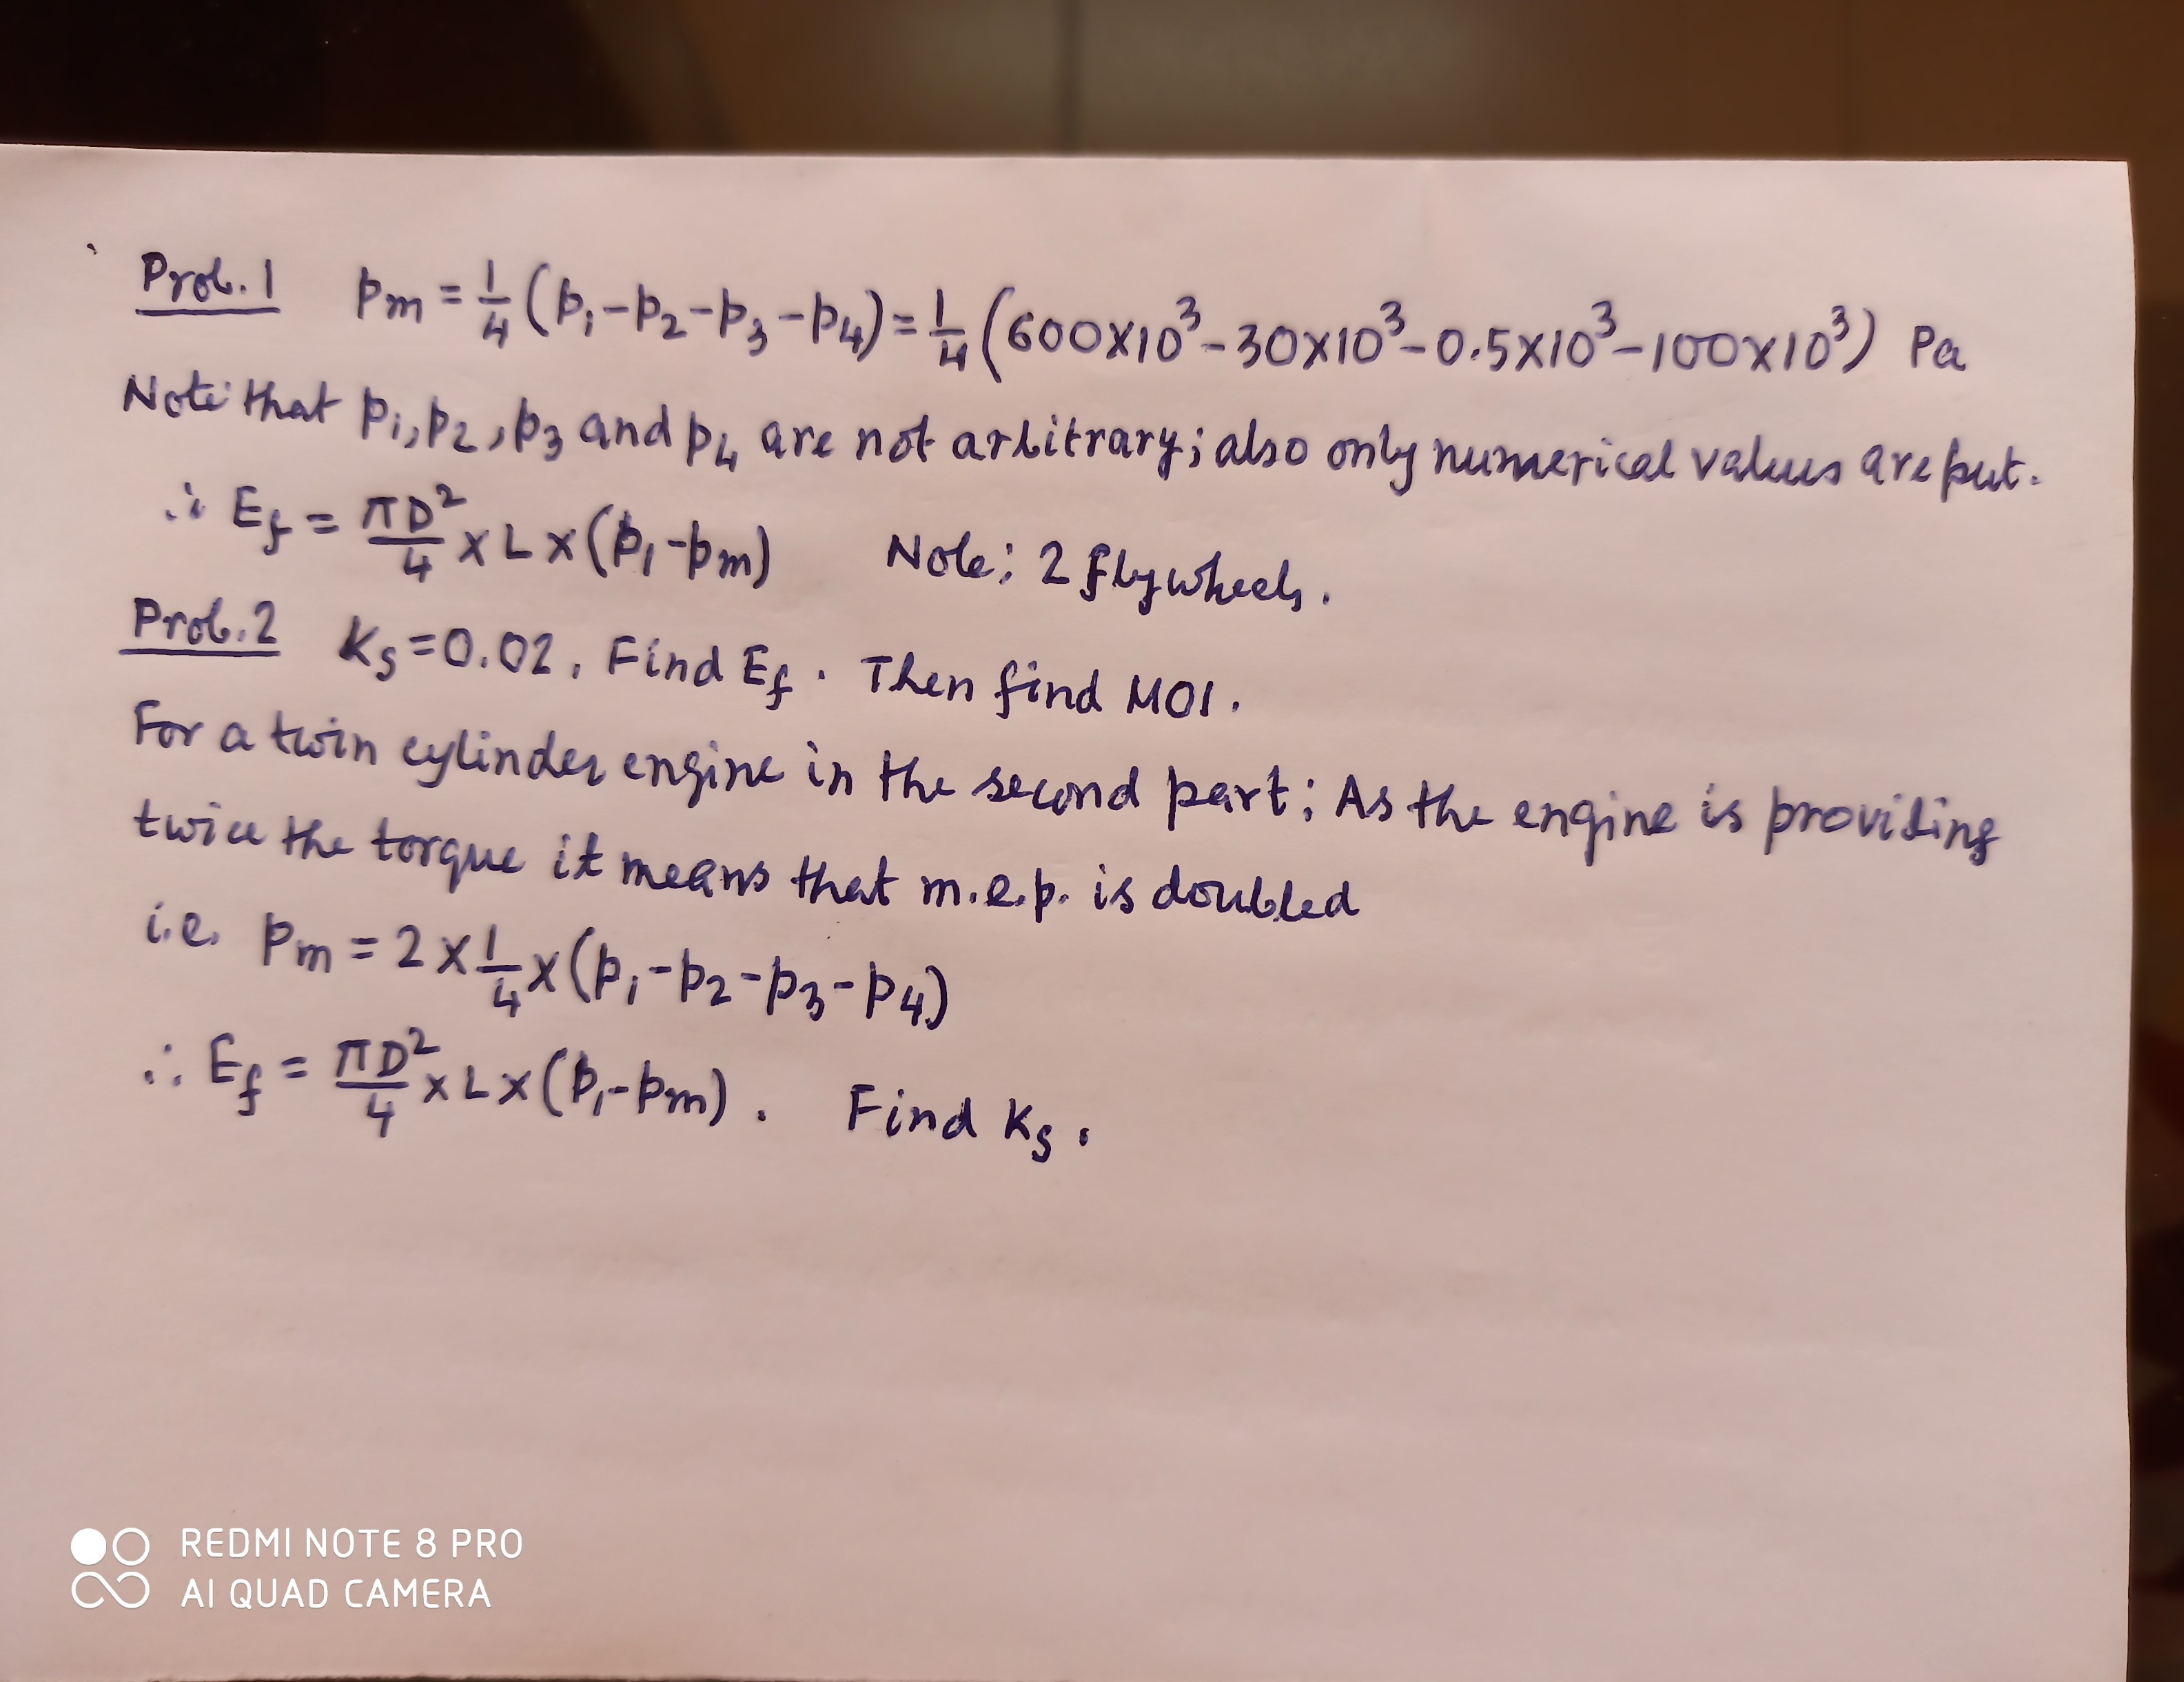 Prob. 1 pm = 1/4 (p1-p2-p3-p4) = 1/4 (600x10³-30x10³-0.5x10³-100x10³) Pa
Note that p1, p2, p3 and p4 are not arbitrary; also only numerical values are put.
∴ Ef = πD²/4 x L x (p1-pm) Note: 2 flywheels.
Prob. 2 Ks=0.02. Find Ef. Then find MOI.
For a twin cylinder engine in the second part: As the engine is providing
twice the torque it means that m.e.p. is doubled
i.e. pm = 2 x 1/4 x (p1-p2-p3-p4)
∴ Ef = πD²/4 x L x (p1-pm). Find Ks.
REDMI NOTE 8 PRO
AI QUAD CAMERA